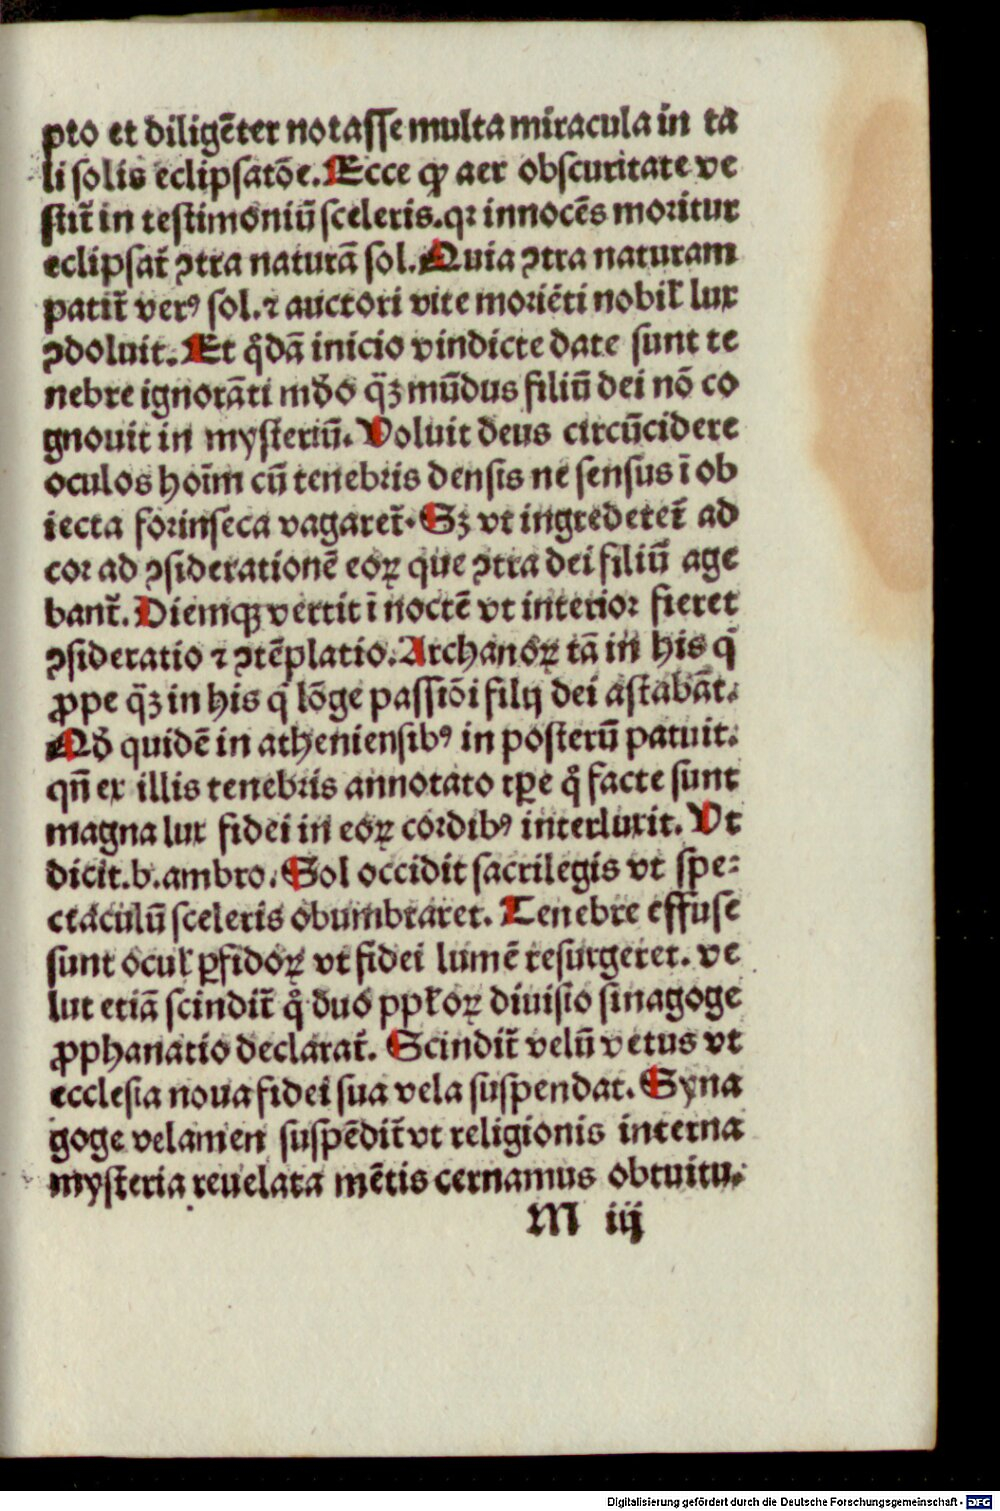 pto et diligēter notasse multa miracula in ta
li solis eclipsatōe. Ecce ꝙ aer obscuritate ve
stit᷑ in testimoniū sceleris. qꝛ innocēs moritur
eclipsat᷑ ꝯtra naturā sol. Quia ꝯtra naturam
patit᷑ verꝰ sol. ⁊ auctori vite moriēti nobil̕ lux
ꝯdoluit. Et q̄dā inicio vindicte date sunt te
nebre ignorāti mōo q̄ꝫ mūdus filiū dei nō co
gnouit in mysteriū. Voluit deus circūcidere
oculos hoīm cū tenebris densis ne sensus ī ob
iecta forinseca vagaret᷑. Sꝫ vt ingrederet᷑ ad
cor ad ꝯsiderationē eoꝝ que ꝯtra dei filiū age
bant᷑. Diemqꝫ vertit ī noctē vt interior fieret
ꝯsideratio ⁊ ꝯtēplatio. Archanoꝝ tā in his q̄
ꝓpe q̄ꝫ in his q̄ lōge passiōi filij dei astabāt.
Qđ quidē in atheniensibꝰ in posterū patuit.
qn̄ ex illis tenebris annotato tꝑe qͦ facte sunt
magna lux fidei in eoꝝ cordibꝰ interluxit. Vt
dicit. b. ambro. Sol occidit sacrilegis vt spe⸗
ctaculū sceleris obumbraret. Tenebre effuse
sunt ocul̕ ꝑfidoꝝ vt fidei lumē resurgeret. ve
lut etiā scindit᷑ qͦ duoꝝ ppl̕oꝝ diuisio sinagoge
ꝓphanatio declarat᷑. Scindit᷑ velū vetus vt
ecclesia noua fidei sua vela suspendat. Syna
goge velamen suspēdit᷑ vt religionis interna
mysteria reuelata mētis cernamus obtuitu.
M iij
Digitalisierung gefördert durch die Deutsche Forschungsgemeinschaft - DFG